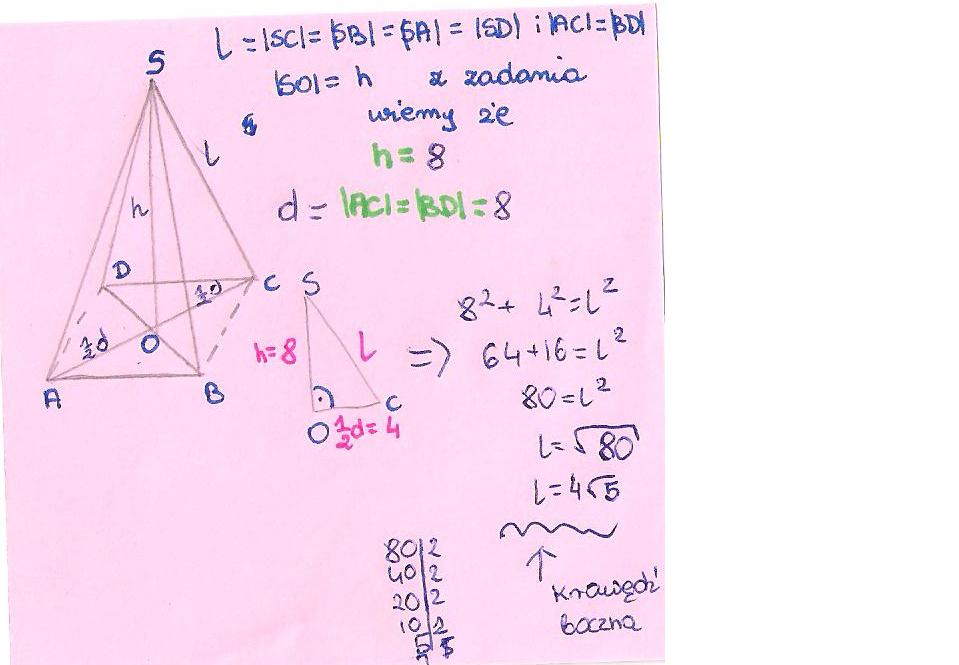 l = |SC| = |SB| = |SA| = |SD| i |AC| = |BD|
|SO| = h z zadania
wiemy że
h = 8
d = |AC| = |BD| = 8
S
l
h
D
C
½d
½d
O
A
B
S
h=8
l
C
O ½d = 4
=> 8² + 4² = l²
64 + 16 = l²
80 = l²
l = √80
l = 4√5
krawędź
boczna
80|2
40|2
20|2
10|2
5|5
1